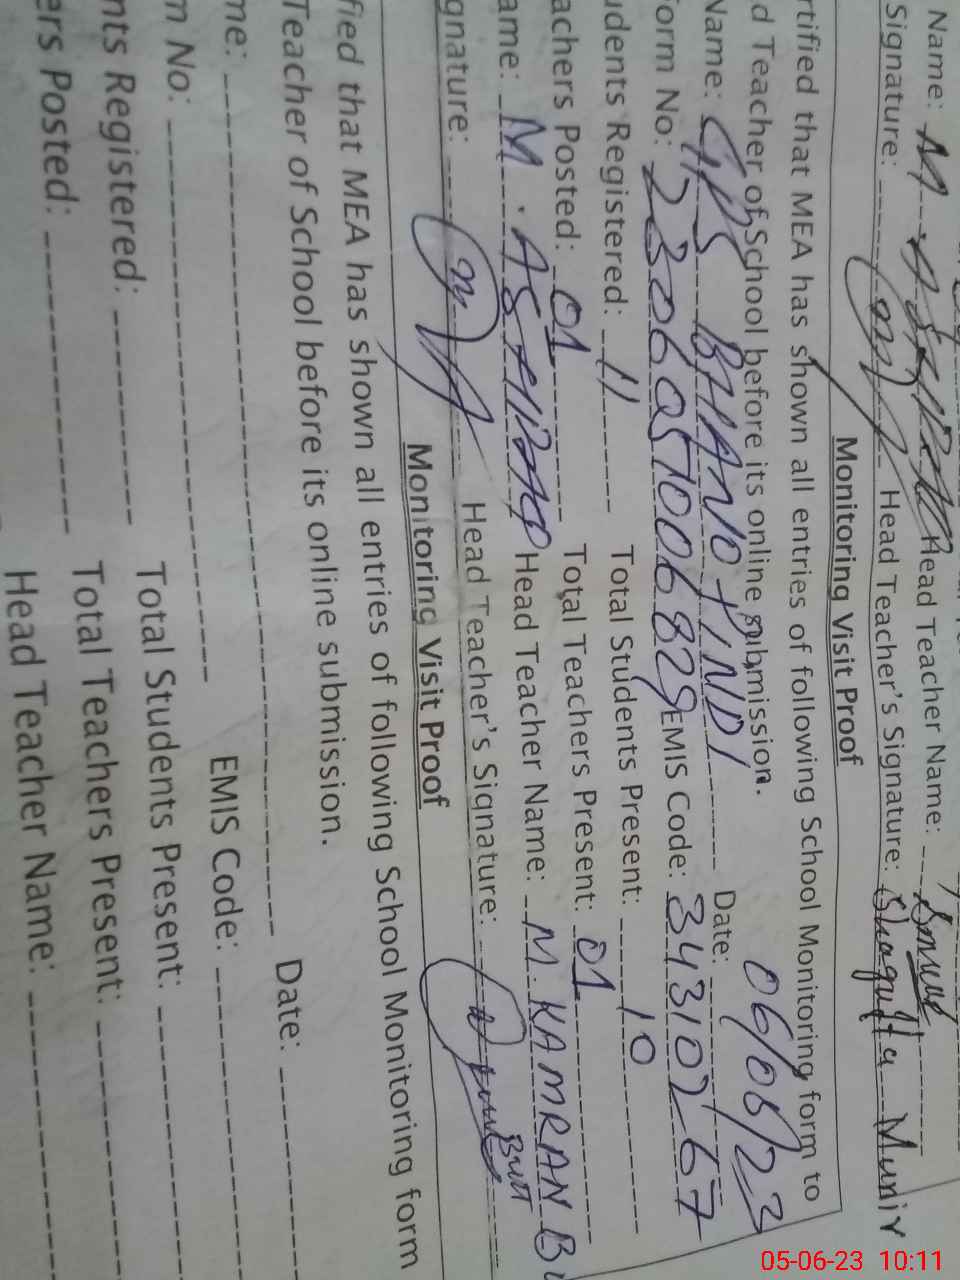 Name: M. ASGHAR Head Teacher Name:
Signature: Head Teacher's Signature: Shagufta Munir
Monitoring Visit Proof
rtified that MEA has shown all entries of following School Monitoring form to
d Teacher of School before its online submission.
Name: GPS BHANO PINDI Date: 06/06/23
orm No: 2306051006829 EMIS Code: 34310267
udents Registered: 11 Total Students Present: 10
achers Posted: 01 Total Teachers Present: 01
ame: M. ASGHAR Head Teacher Name: M. KAMRAN B
gnature: Head Teacher's Signature: Butt
Monitoring Visit Proof
fied that MEA has shown all entries of following School Monitoring form
Teacher of School before its online submission.
me: Date:
m No: EMIS Code:
nts Registered: Total Students Present:
ers Posted: Total Teachers Present:
Head Teacher Name:
05-06-23 10:11